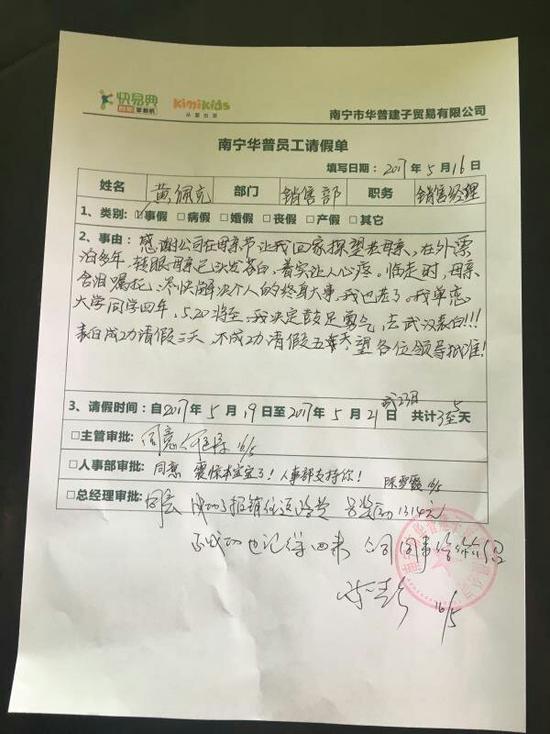 快易典
kimikids
从童出发
南宁市华普建子贸易有限公司
南宁华普员工请假单
填写日期: 2017年5月16日
姓名 黄佩克 部门 销售部 职务 销售经理
1、类别: ☑事假 □病假 □婚假 □丧假 □产假 □其它
2、事由: 感谢公司在母亲节让我回家探望老母亲,在外漂
泊多年,转眼母亲已头发苍白,着实让人心疼。临走时,母亲
含泪嘱托,尽快解决个人的终身大事。我也老了。我单恋
大学同学四年,5.20将至,我决定鼓足勇气,去武汉表白!!!
表白成功请假三天,不成功请假五天,望各位领导批准!
3、请假时间: 自2017年5月19日至2017年5月21日 共计3至5天
或23日
□主管审批: 同意 16/5
□人事部审批: 同意 震惊本宝宝了!人事部支持你! 陈雪霞 16/5
□总经理审批: 同意 成功了报销往返路费 另奖励1314元!
不成功也记得回来 公司同事给你介绍
16/5